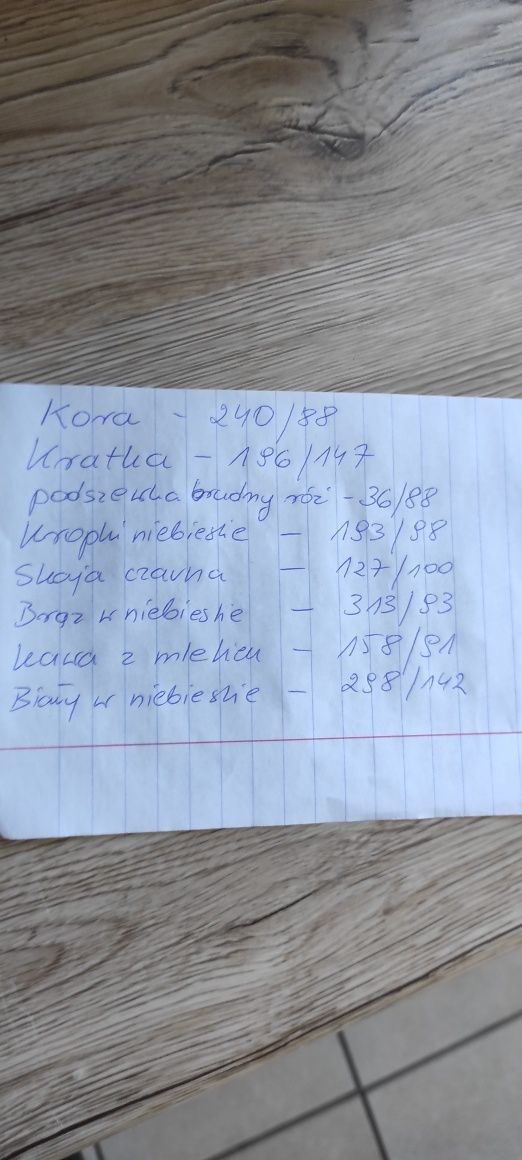 Kora - 240/88
Kratka - 196/147
podszewka brudny róż - 36/88
Kropki niebieskie - 193/98
Skaja czarna - 127/100
Brąz w niebieskie - 313/93
kawa z mlekiem - 158/91
Biały w niebieskie - 298/142